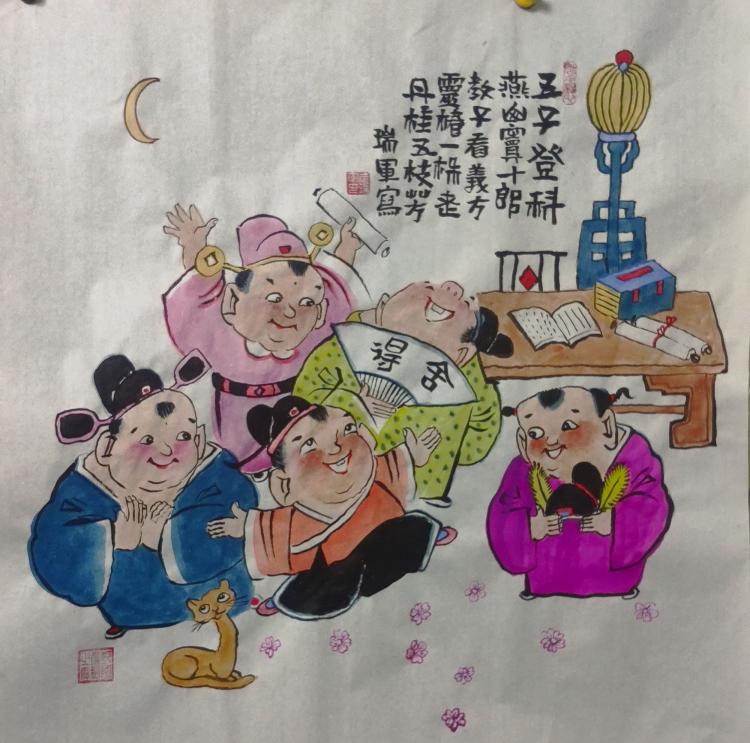 五子登科
燕幽竇十郎
教子看義方
靈椿一株老
丹桂五枝芳
瑞軍寫
舍得